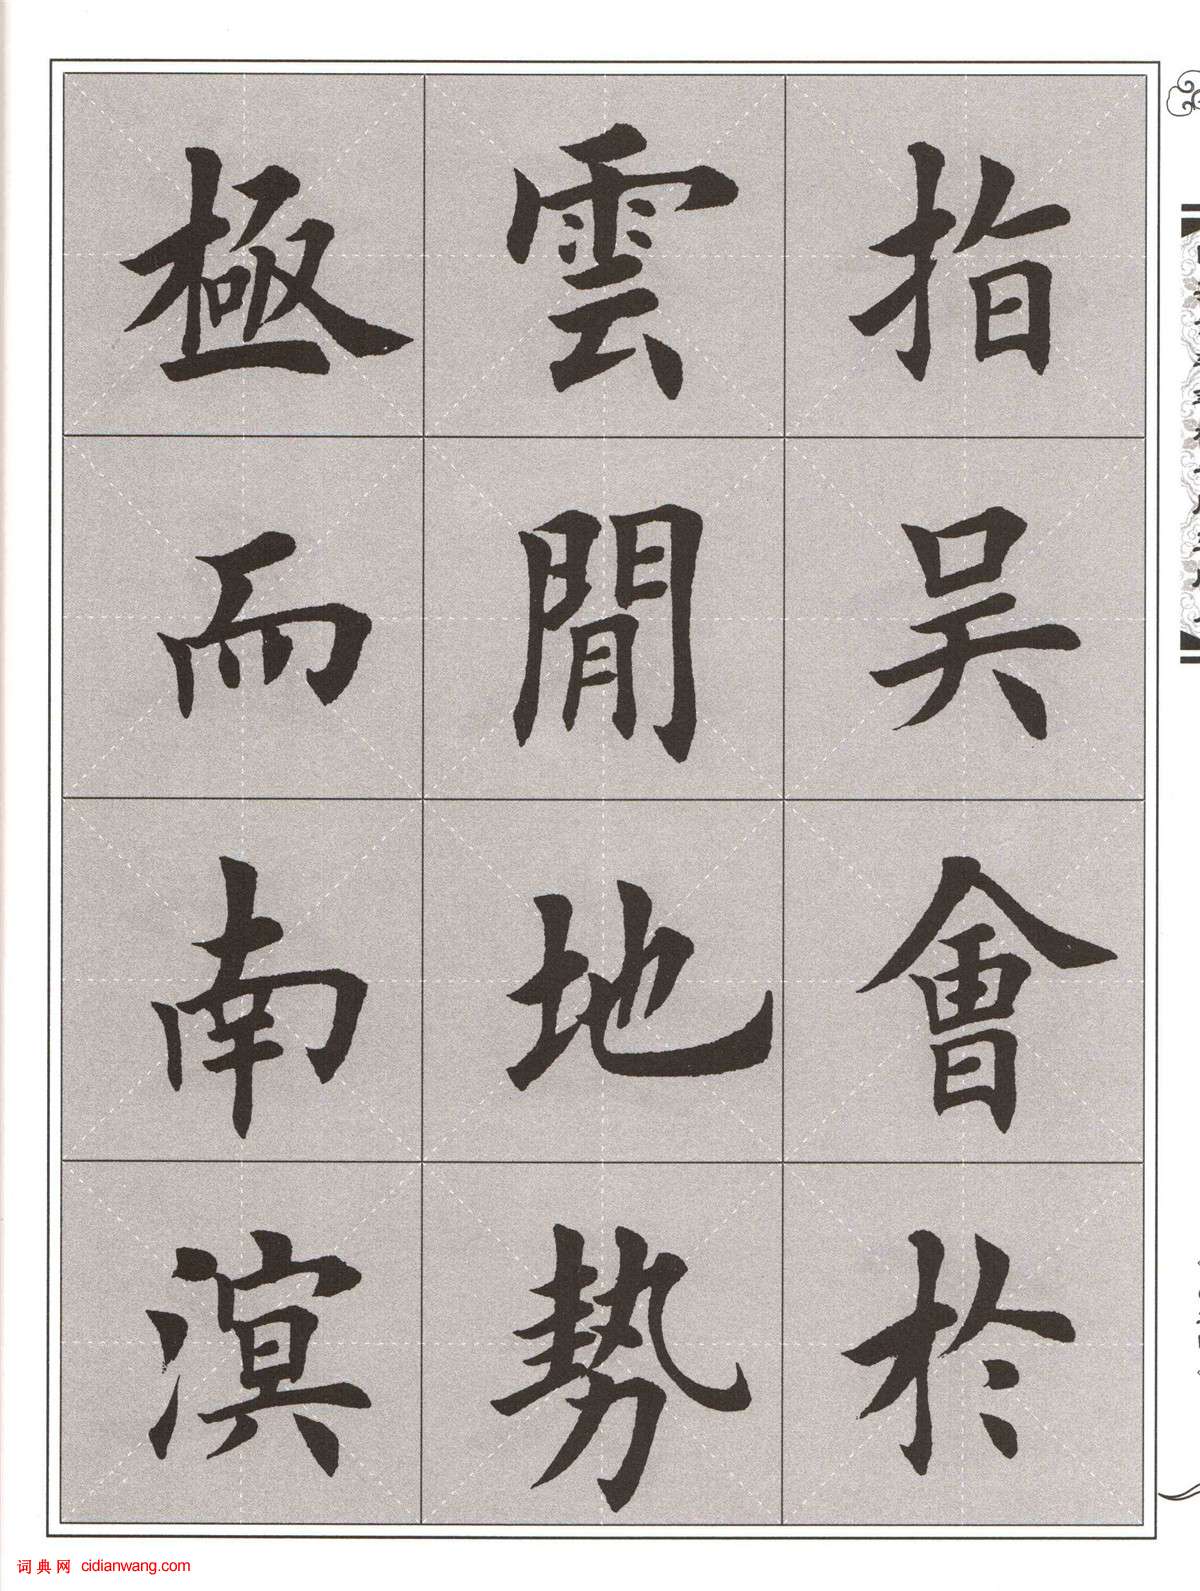 指吴會於
雲間地勢
極而南溟
词典网 cidianwang.com